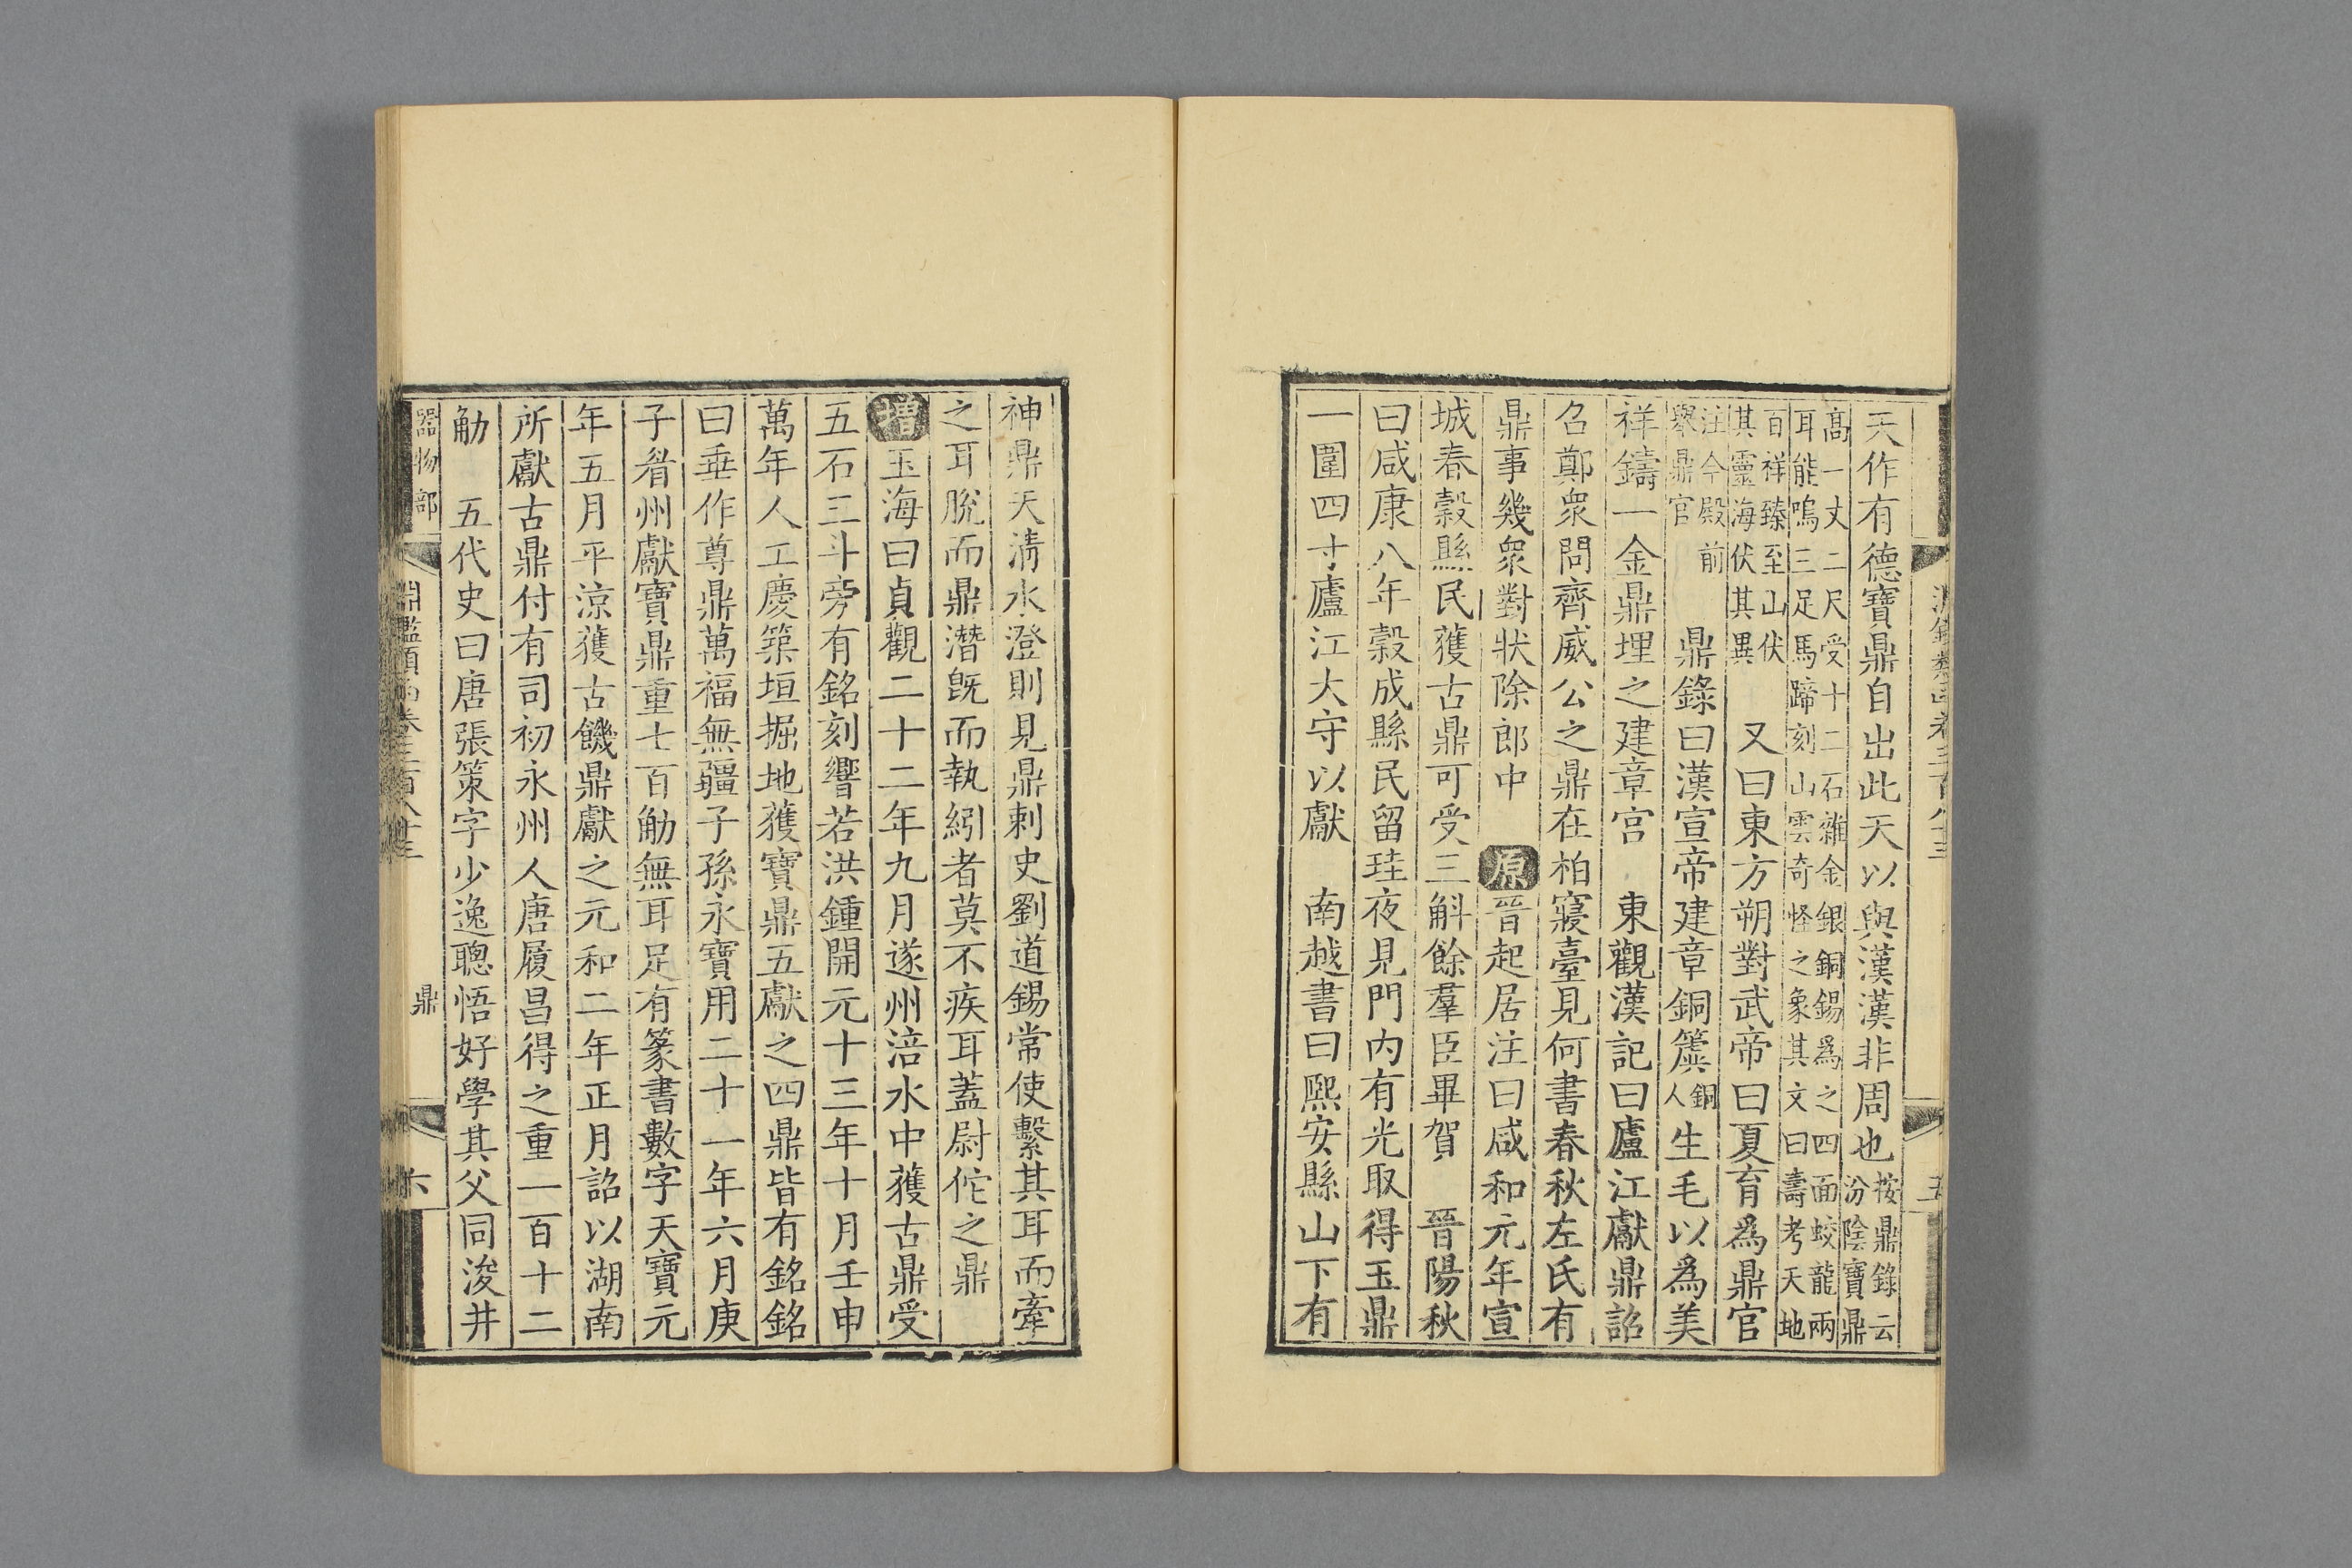 天作有德寶鼎自出此天以與漢漢非周也按鼎錄云汾陰寶鼎
高一丈二尺受十二石雜金銀銅錫爲之四面蛟龍兩耳能鳴三足馬蹄刻山雲奇怪之象其文曰壽考天地
百祥臻至山伏其靈海伏其異 又曰東方朔對武帝曰夏育爲鼎官
注今殿前舉鼎官 鼎錄曰漢宣帝建章銅簴銅人生毛以爲美
祥鑄一金鼎埋之建章宮 東觀漢記曰廬江獻鼎詔
召鄭衆問齊威公之鼎在柏寢臺見何書春秋左氏有
鼎事幾衆對狀除郎中 原晉起居注曰咸和元年宣
城春穀縣民獲古鼎可受三斛餘羣臣畢賀 晉陽秋
曰咸康八年穀成縣民留珪夜見門內有光取得玉鼎
一圍四寸廬江太守以獻 南越書曰熈安縣山下有
神鼎天清水澄則見鼎刺史劉道錫常使繫其耳而牽
之耳脫而鼎潛旣而執紖者莫不疾耳蓋尉佗之鼎
增玉海曰貞觀二十二年九月遂州涪水中獲古鼎受
五石三斗旁有銘刻響若洪鍾開元十三年十月壬申
萬年人工慶築垣掘地獲寶鼎五獻之四鼎皆有銘銘
曰垂作尊鼎萬福無疆子孫永寶用二十一年六月庚
子眉州獻寶鼎重七百觔無耳足有篆書數字天寶元
年五月平涼獲古鐖鼎獻之元和二年正月詔以湖南
所獻古鼎付有司初永州人唐履昌得之重一百十二
觔 五代史曰唐張策字少逸聰悟好學其父同浚井
器物部 淵鑑類函卷三百八十三 鼎 六